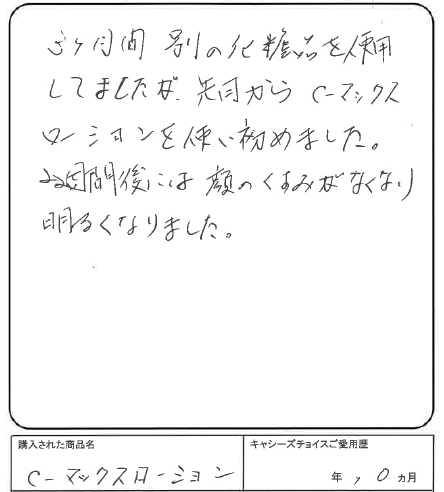 5ヶ月間 別の化粧品を使用
してましたが、先月から C-マックス
ローションを使い初めました。
2週間後には 顔のくすみがなくなり
明るくなりました。
購入された商品名
C-マックスローション
キャシーズチョイスご愛用歴
年 10 ヵ月